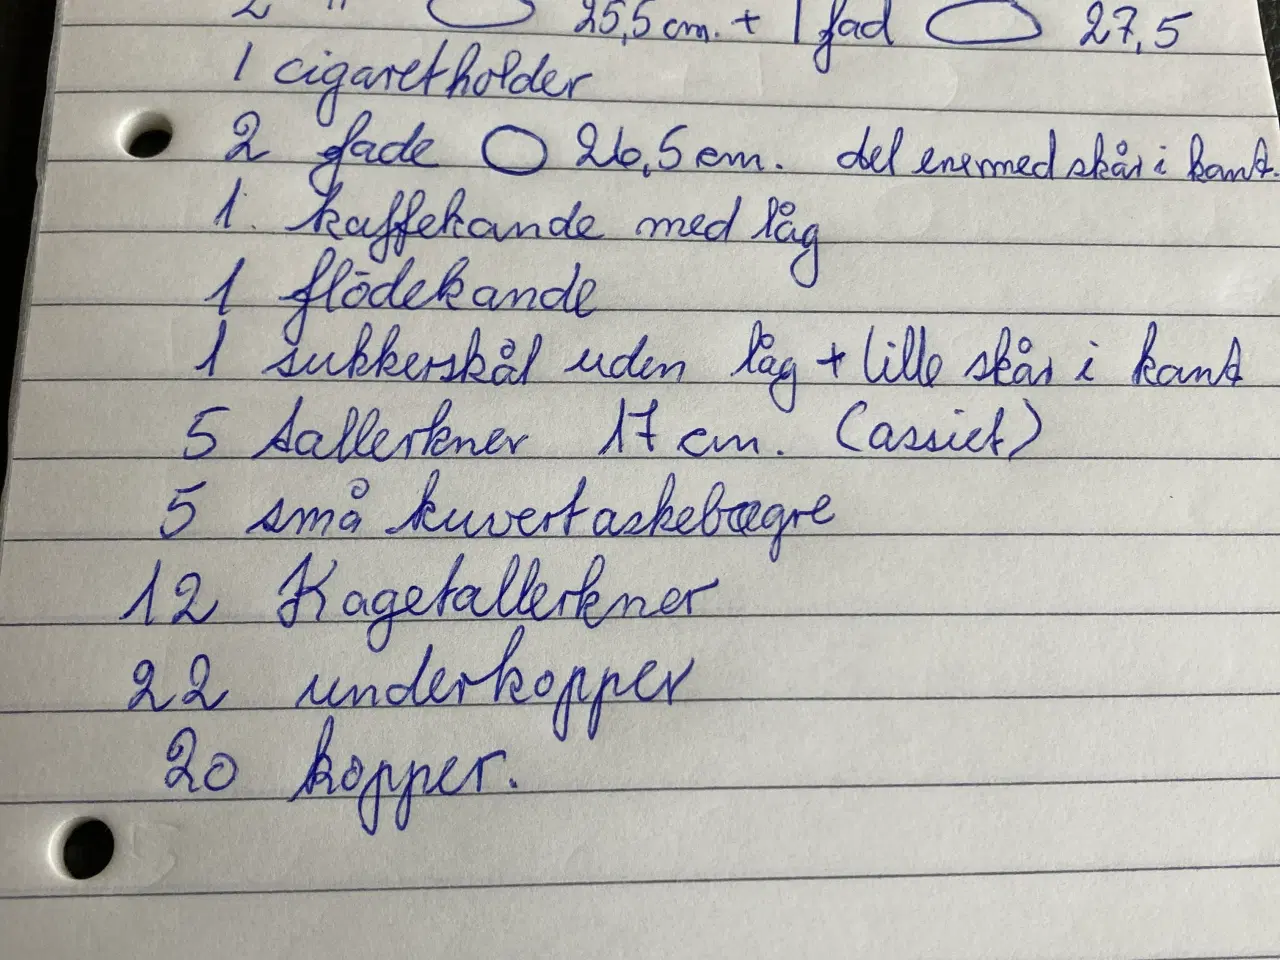 2 " 25,5 cm. + 1 fad 27,5
1 cigaretholder
2 fade 26,5 cm. del ene med skår i kant.
1. kaffekande med låg
1 flödekande
1 sukkerskål uden låg + lille skår i kant
5 tallerkner 17 cm. (assiet)
5 små kuvertaskebægre
12 Kagetallerkner
22 underkopper
20 kopper.